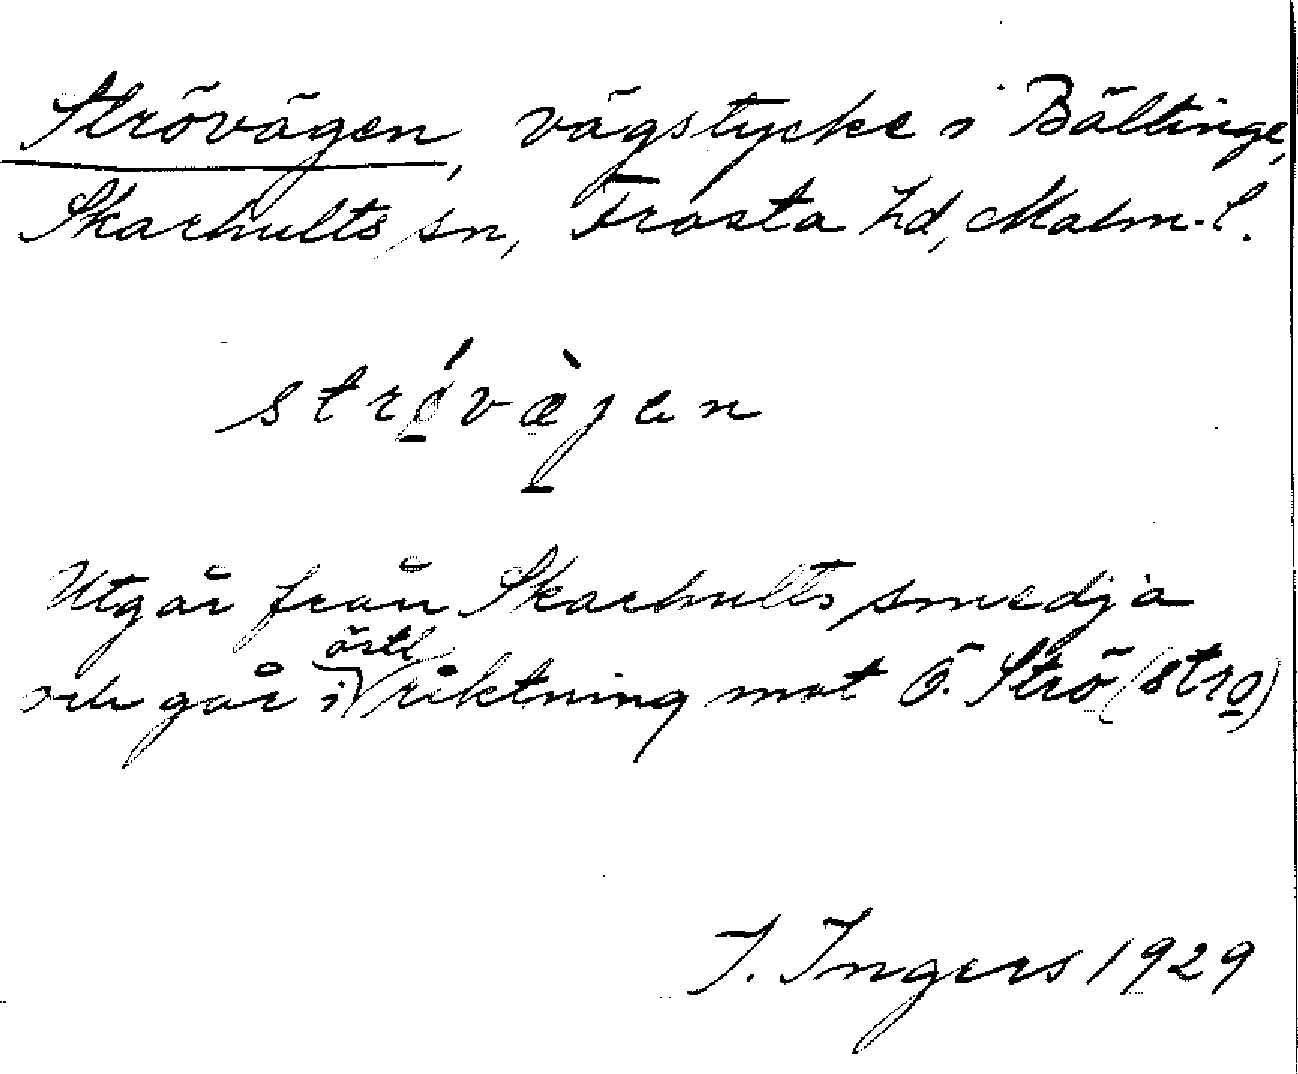 Strövägen, vägstycke i Bältinge,
Skarhults sn, Frosta hd, Malm. l.
strǿ̱væ̱̀jen
Utgår från Skarhults smedja
och går i östl riktning mot Ö. Strö (strø̱)
I. Ingers 1929